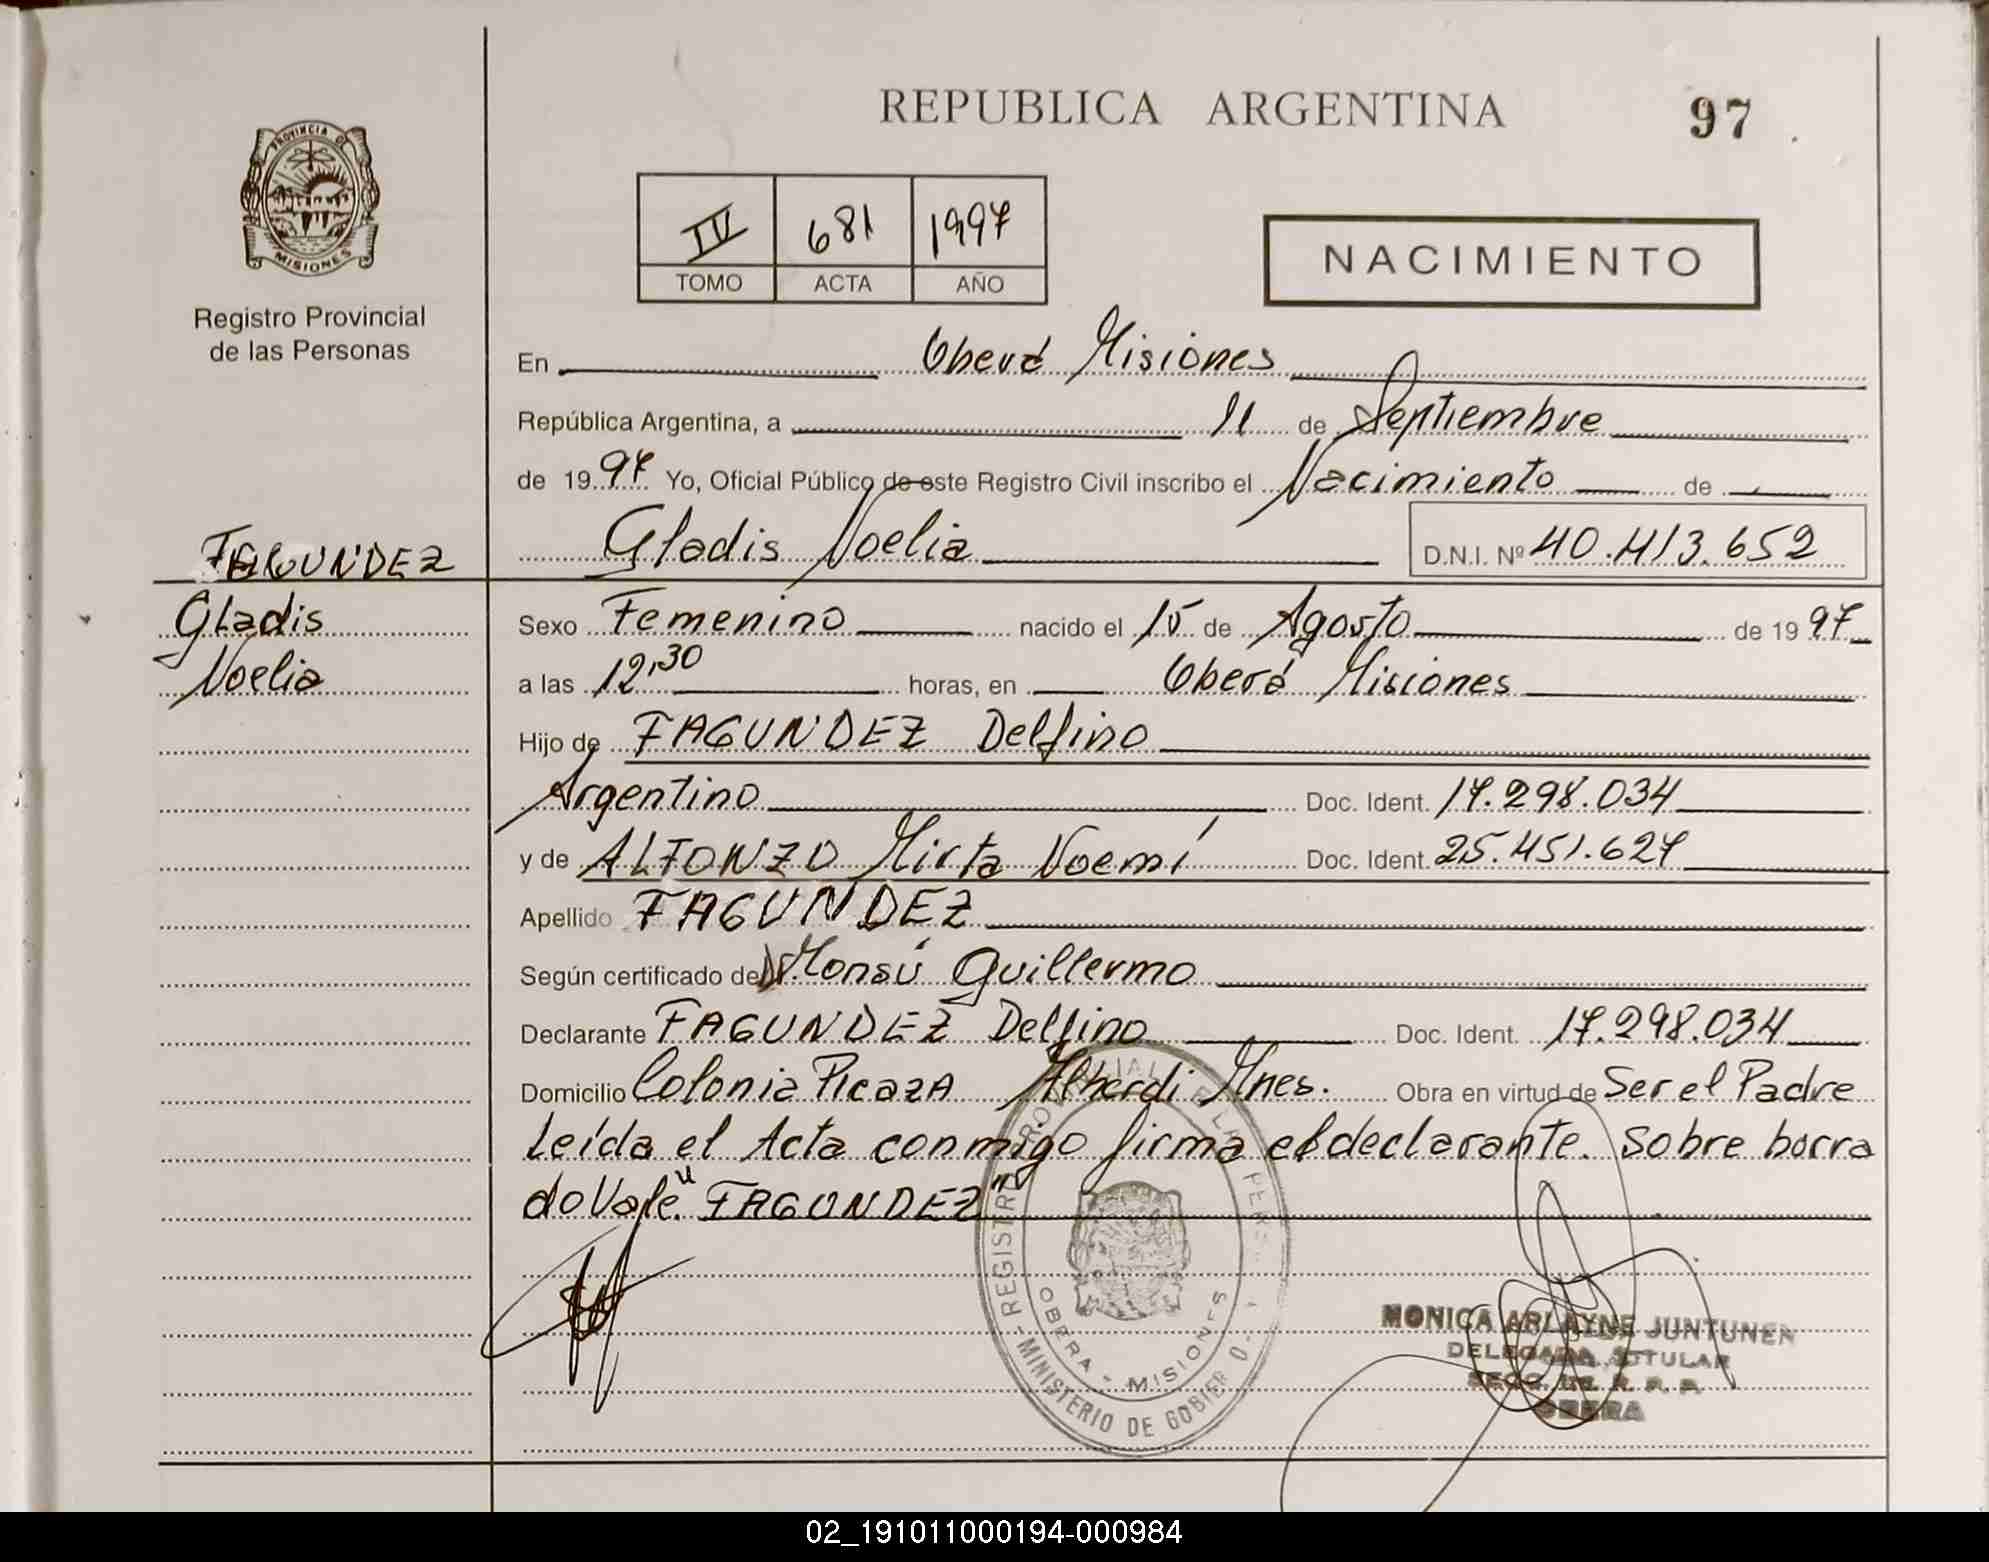 REPUBLICA ARGENTINA
97
PROVINCIA DE
MISIONES
Registro Provincial
de las Personas
IV 681 1997
TOMO ACTA AÑO
NACIMIENTO
En Oberá Misiones
República Argentina, a 11 de Septiembre
de 1997 Yo, Oficial Público de este Registro Civil inscribo el Nacimiento de
Gladis Noelia D.N.I. Nº 40.413.652
FAGUNDEZ
Gladis
Noelia
Sexo Femenino nacido el 15 de Agosto de 1997
a las 12,30 horas, en Oberá Misiones
Hijo de FAGUNDEZ Delfino
Argentino Doc. Ident. 17.298.034
y de ALFONZO Mirta Noemí Doc. Ident. 25.451.627
Apellido FAGUNDEZ
Según certificado de Dr. Monsú Guillermo
Declarante FAGUNDEZ Delfino Doc. Ident. 17.298.034
Domicilio Colonia Picaza Alberdi Mnes. Obra en virtud de Ser el Padre
Leída el Acta conmigo firma el declarante. Sobre borra
do Vale "FAGUNDEZ"
OBERA - MISIONES
MINISTERIO DE GOBIER
MONICA ARLAYNE JUNTUNEN
DELEGADA TITULAR
OBERA
02_191011000194-000984